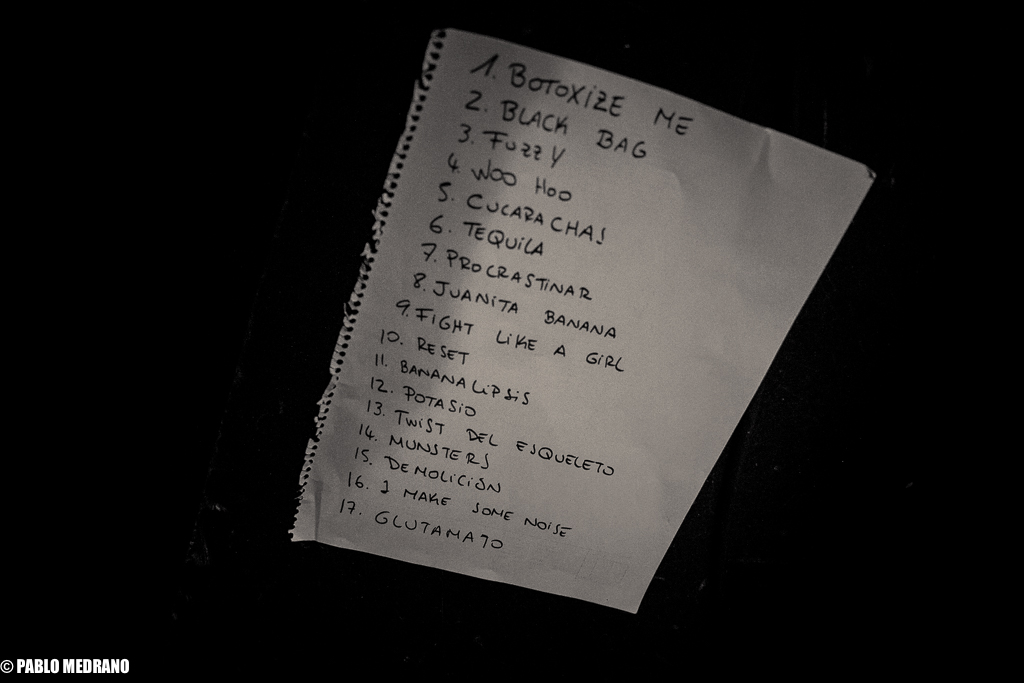 1. BOTOXIZE ME
2. BLACK BAG
3. FUZZY
4. WOO HOO
5. CUCARACHAS
6. TEQUILA
7. PROCRASTINAR
8. JUANITA BANANA
9. FIGHT LIKE A GIRL
10. RESET
11. BANANALIPSIS
12. POTASIO
13. TWIST DEL ESQUELETO
14. MUNSTERS
15. DEMOLICIÓN
16. I MAKE SOME NOISE
17. GLUTAMATO
© PABLO MEDRANO